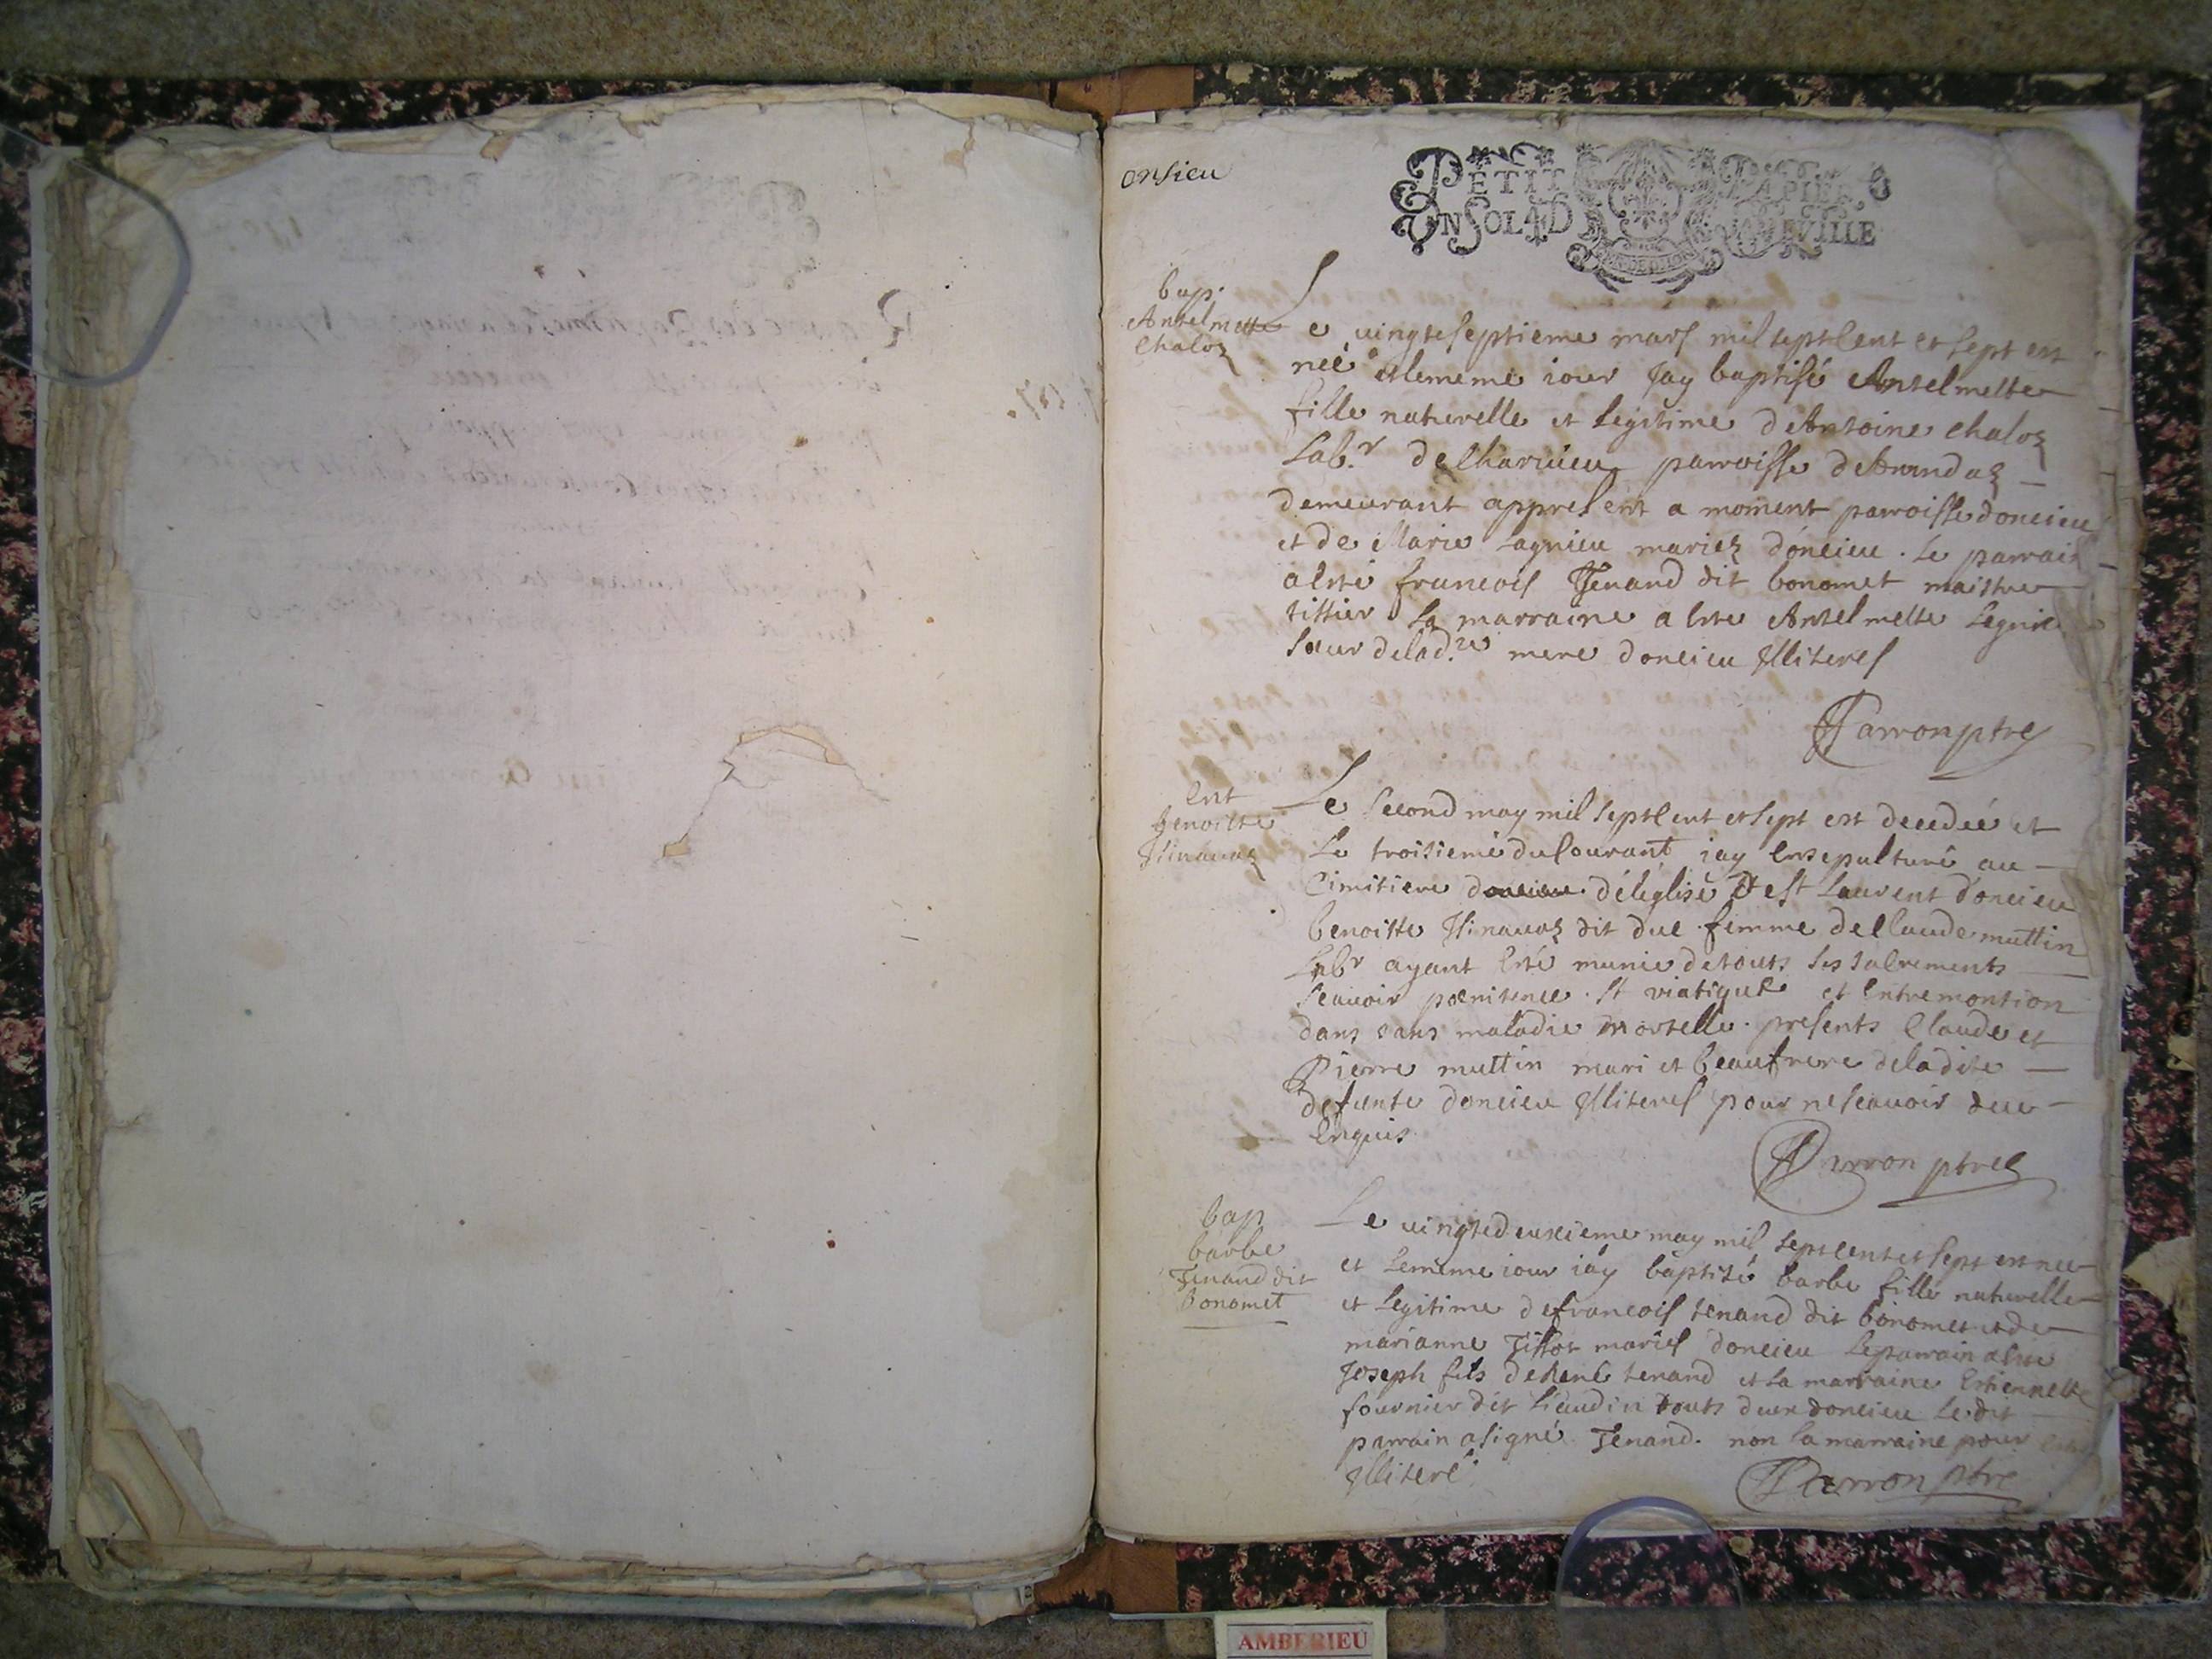 onsieu
PETIT PAPIER
UN SOL 4 D
bap.
Anselmette
Chaloz
Le vingteseptieme mars mil septcent et sept est
neé et lememe iour Jay baptisé Anselmette
fille naturelle et legitime d'Antoine chaloz
Labr. de parroisse
demeurant appresent a moment parroisse doncieu
et de Marie Lagnieu mariez doncieu. Le parrain
a esté francois Tenand dit bonomet maistre
tissier La marraine a este Anselmette
Sœur delad.te mere doncieu Illiteres
Parron ptre
Ent
benoitte
Le second may mil septcent et sept est decedeé et
Le troisieme du Courant iay ensepulturé au
Cimitiere doncieu deleglise St Laurent doncieu
benoitte dit duc femme de Claude muttin
Labr ayant esté munie detouts ses sacrements
scavoir pœnitence. St viatique et
dans sans maladie mortelle. presents Claude et
Pierre muttin mari et beaufrere deladite
defunte doncieu Illiteres pour nescavoir deue
enquis
Parron ptre
bap
barbe
Tenand dit
bonomet
Le vingtedeuxieme may mil septcent et sept est nee
et lememe iour iay baptisé barbe fille naturelle
et legitime defrancois tenand dit bonomet et de
marianne Tissot mariés doncieu Leparrain a este
Joseph fils de René tenand et la marraine Estiennette
fournier dit Liaudin touts deux doncieu Ledit
parrain a signé Tenand. non la marraine pour
Illiteré.
Parron ptre
AMBERIEU